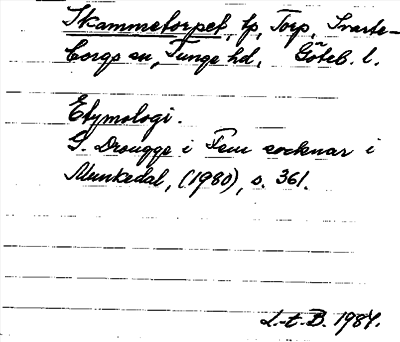 Skammetorpet, tp, Torp, Svarte-
borgs sn, Tunge hd, Göteb. l.
Etymologi.
G. Drougge i Fem socknar i
Munkedal, (1980), s. 361.
L-t-B. 1984.